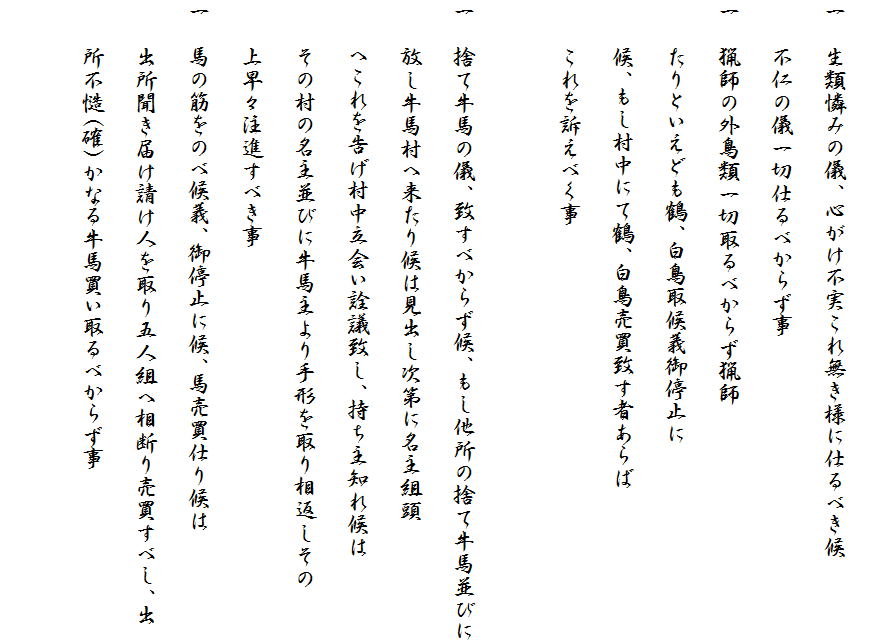 一 生類憐みの儀、心がけ不実これ無き様に仕るべき候
不仁の儀一切仕るべからず事
一 猟師の外鳥類一切取るべからず猟師
たりといえども鶴、白鳥取候義御停止に
候、もし村中にて鶴、白鳥売買致す者あらば
これを訴えべく事
一 捨て牛馬の儀、致すべからず候、もし他所の捨て牛馬並びに
放し牛馬村へ来たり候は見出し次第に名主組頭
へこれを告げ村中立会い詮議致し、持ち主知れ候は
その村の名主並びに牛馬主より手形を取り相返しその
上早々注進すべき事
一 馬の筋をのべ候義、御停止に候、馬売買仕り候は
出所聞き届け請け人を取り五人組へ相断り売買すべし、出
所不慥(確)かなる牛馬買い取るべからず事